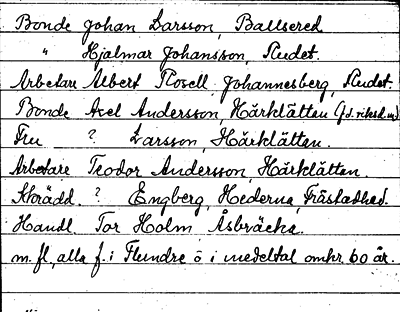 Bonde Johan Larsson, Ballsered.
" Hjalmar Johansson, Sludet.
Arbetare Albert Rosell, Johannesberg, Sludet.
Bonde Axel Andersson, Hårklättan (f.d. riksd.m).
Fru ? Larsson, Hårklättan.
Arbetare Teodor Andersson, Hårklättan.
Skrädd. ? Engberg, Hederna, Frästadhed.
Handl. Tor Holm Åsbräcka.
m.fl, alla f. i Flundre ö i medeltal omkr. 60 år.